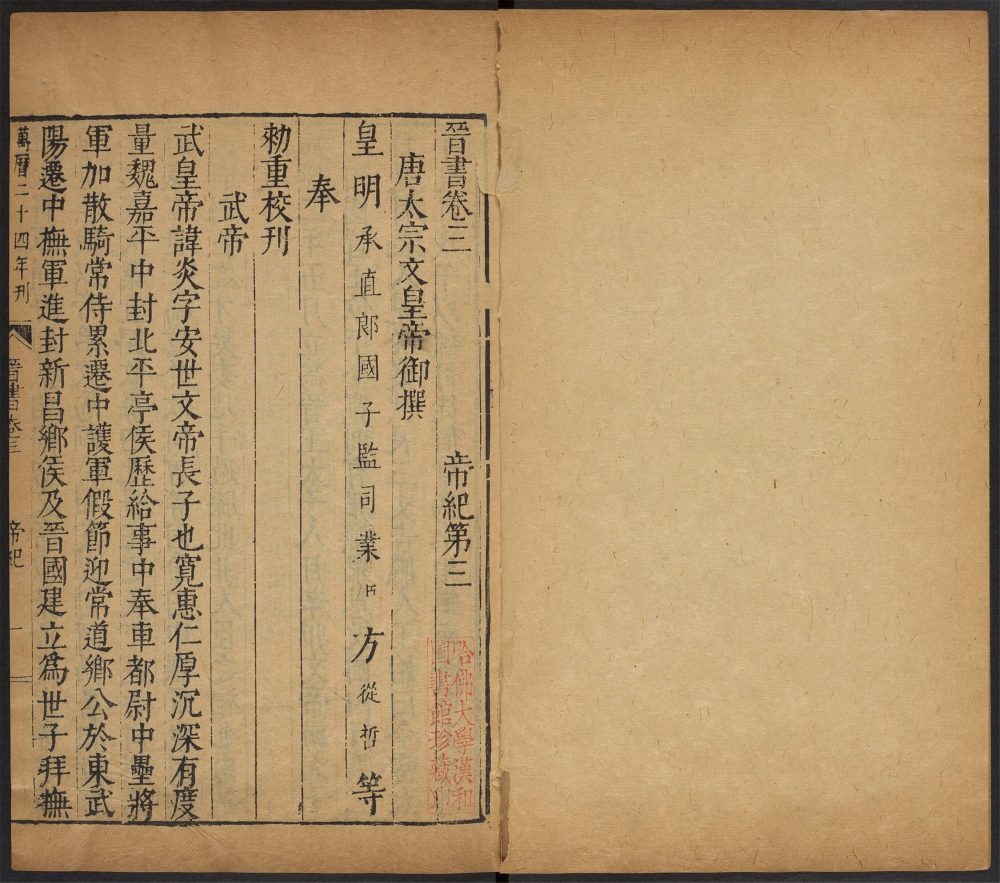 晉書卷三 帝紀第三
唐太宗文皇帝御撰
皇明承直郎國子監司業 方從哲等
奉
勑重校刊
武帝
武皇帝諱炎字安世文帝長子也寛惠仁厚沉深有度
量魏嘉平中封北平亭侯歷給事中奉車都尉中壘將
軍加散騎常侍累遷中護軍假節迎常道鄉公於東武
陽遷中撫軍進封新昌鄉侯及晉國建立爲世子拜撫
萬曆二十四年刊 晉書卷三 帝紀 一
哈佛大學漢和
圖書館珍藏印